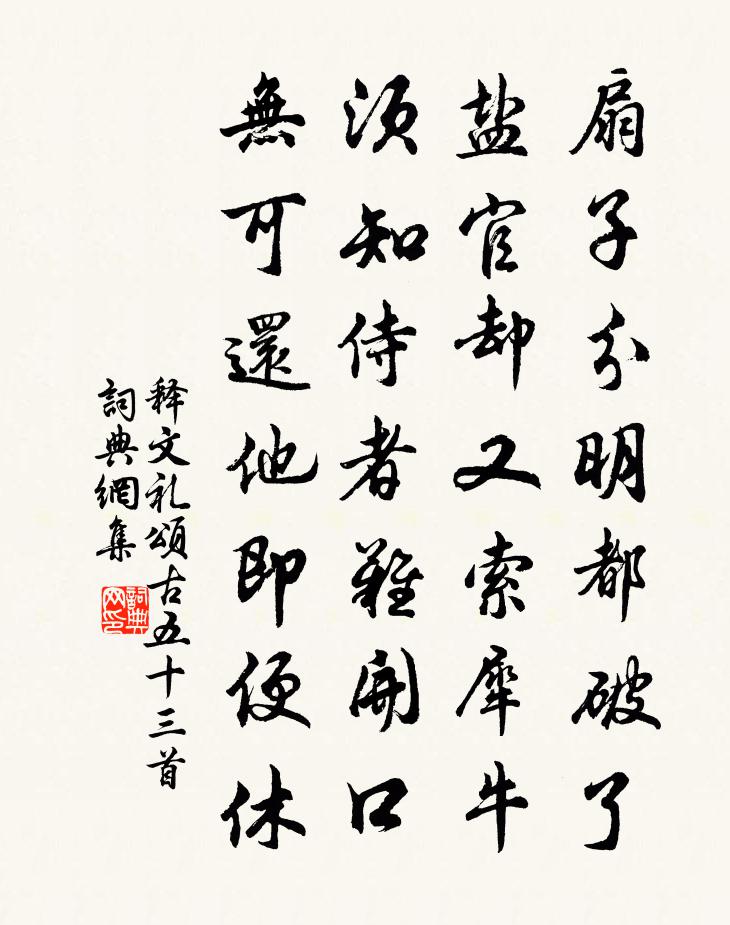 扇子分明都破了
盐官却又索犀牛
须知侍者難開口
無可還他即便休
释文礼頌古五十三首
詞典網集
詞典网印